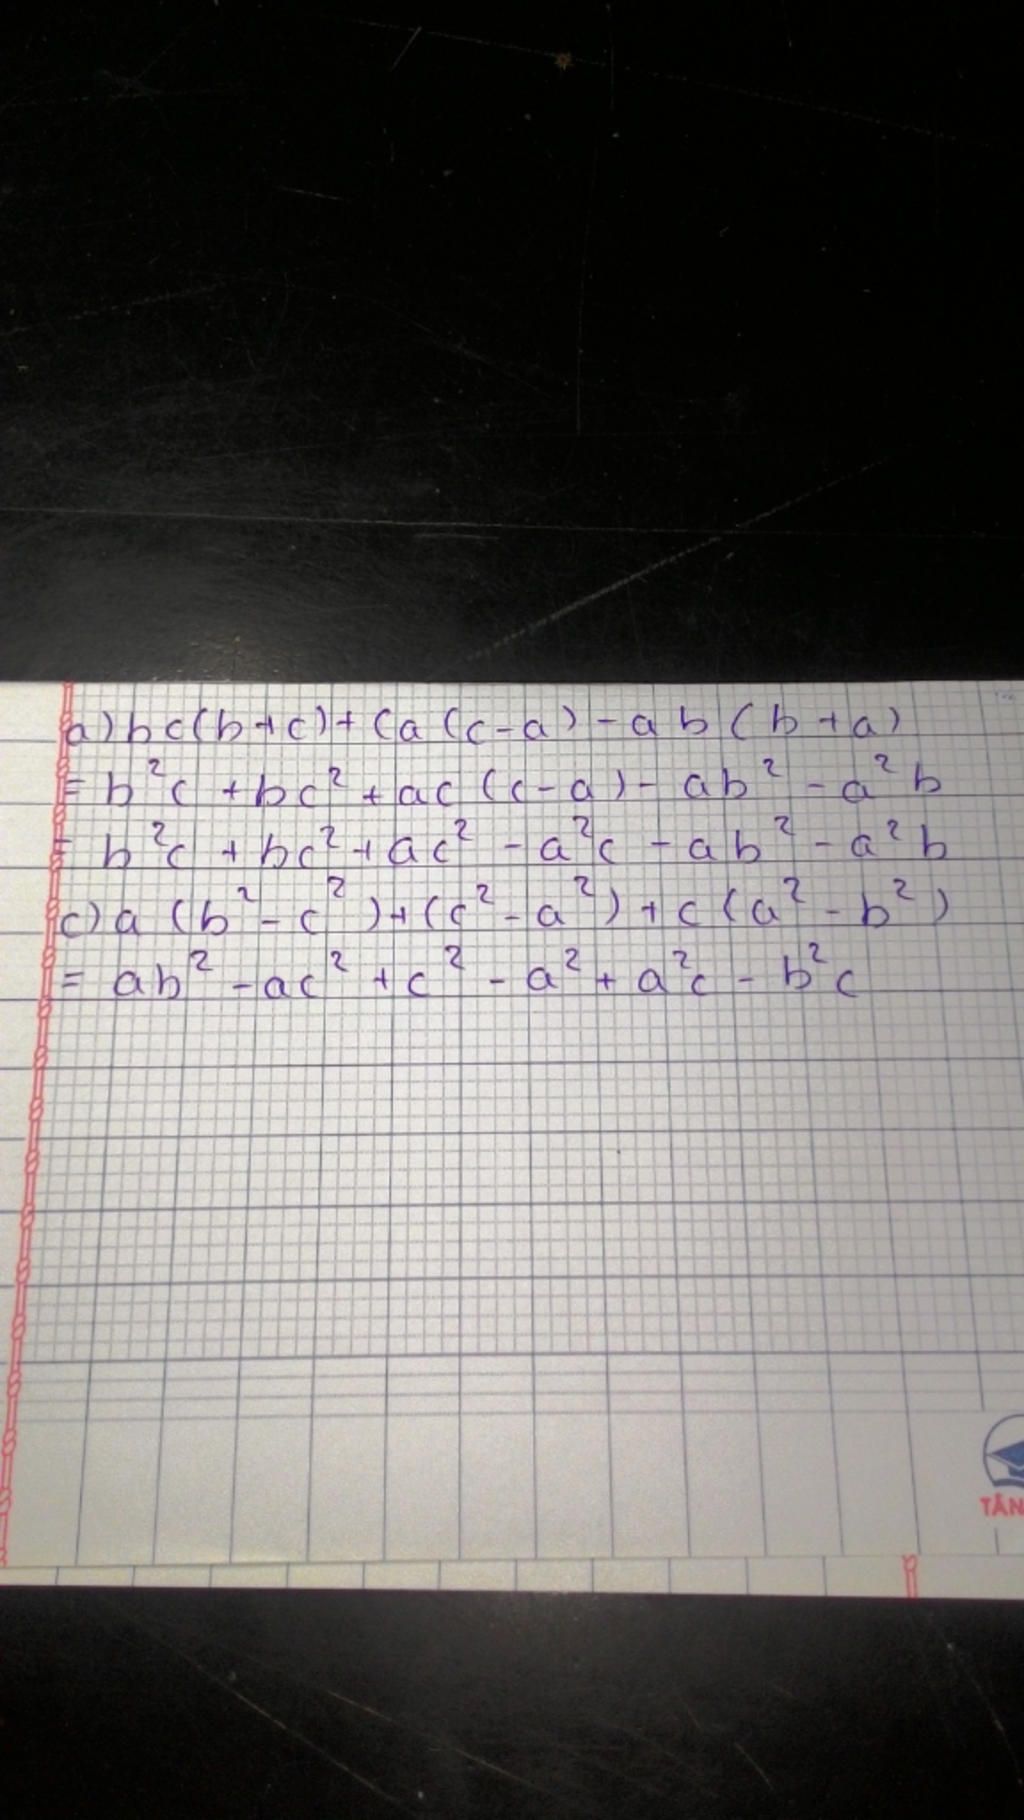 a) bc(b+c)+(a(c-a)-ab(b+a)
= b²c + bc² + ac (c-a) - ab² - a²b
= b²c + bc² + ac² - a²c - ab² - a²b
c) a (b² - c²) + (c² - a²) + c (a² - b²)
= ab² - ac² + c² - a² + a²c - b²c
TÂN